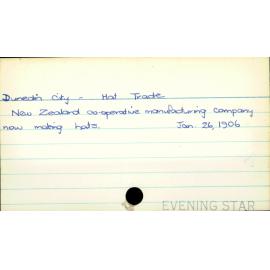 Dunedin City - Hat Trade
New Zealand co-operative manufacturing company
now making hats. Jan. 26, 1906
EVENING STAR